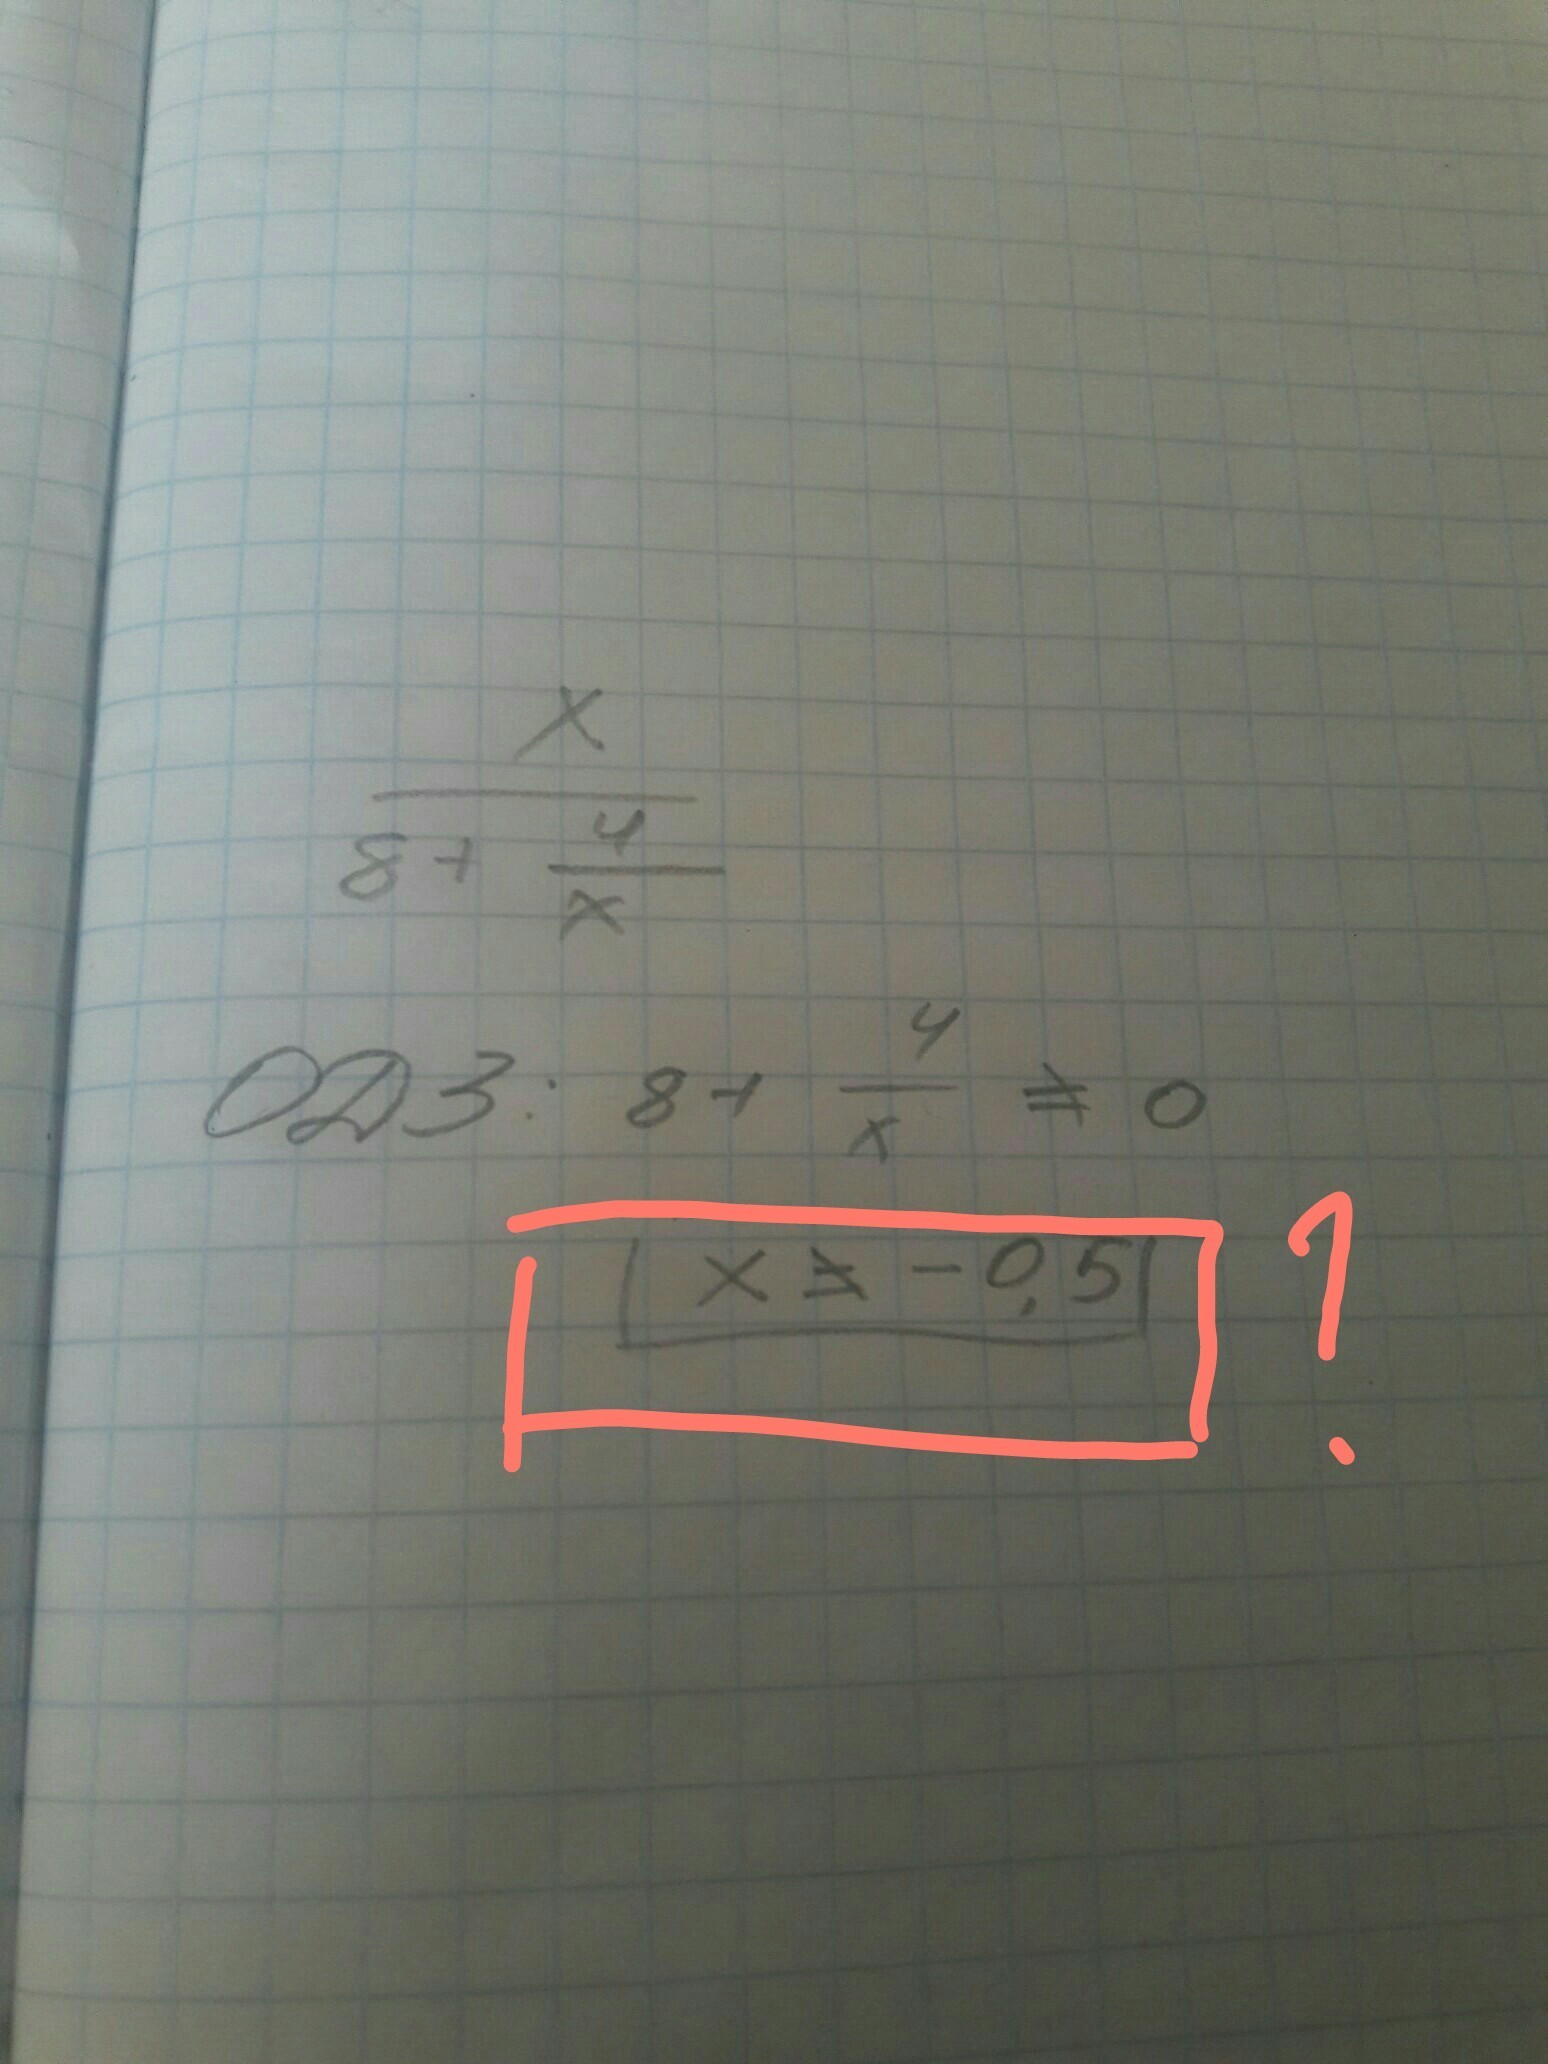 x
8+ 4
x
ОДЗ: 8+ 4/x ≠ 0
x ≠ -0,5 ?